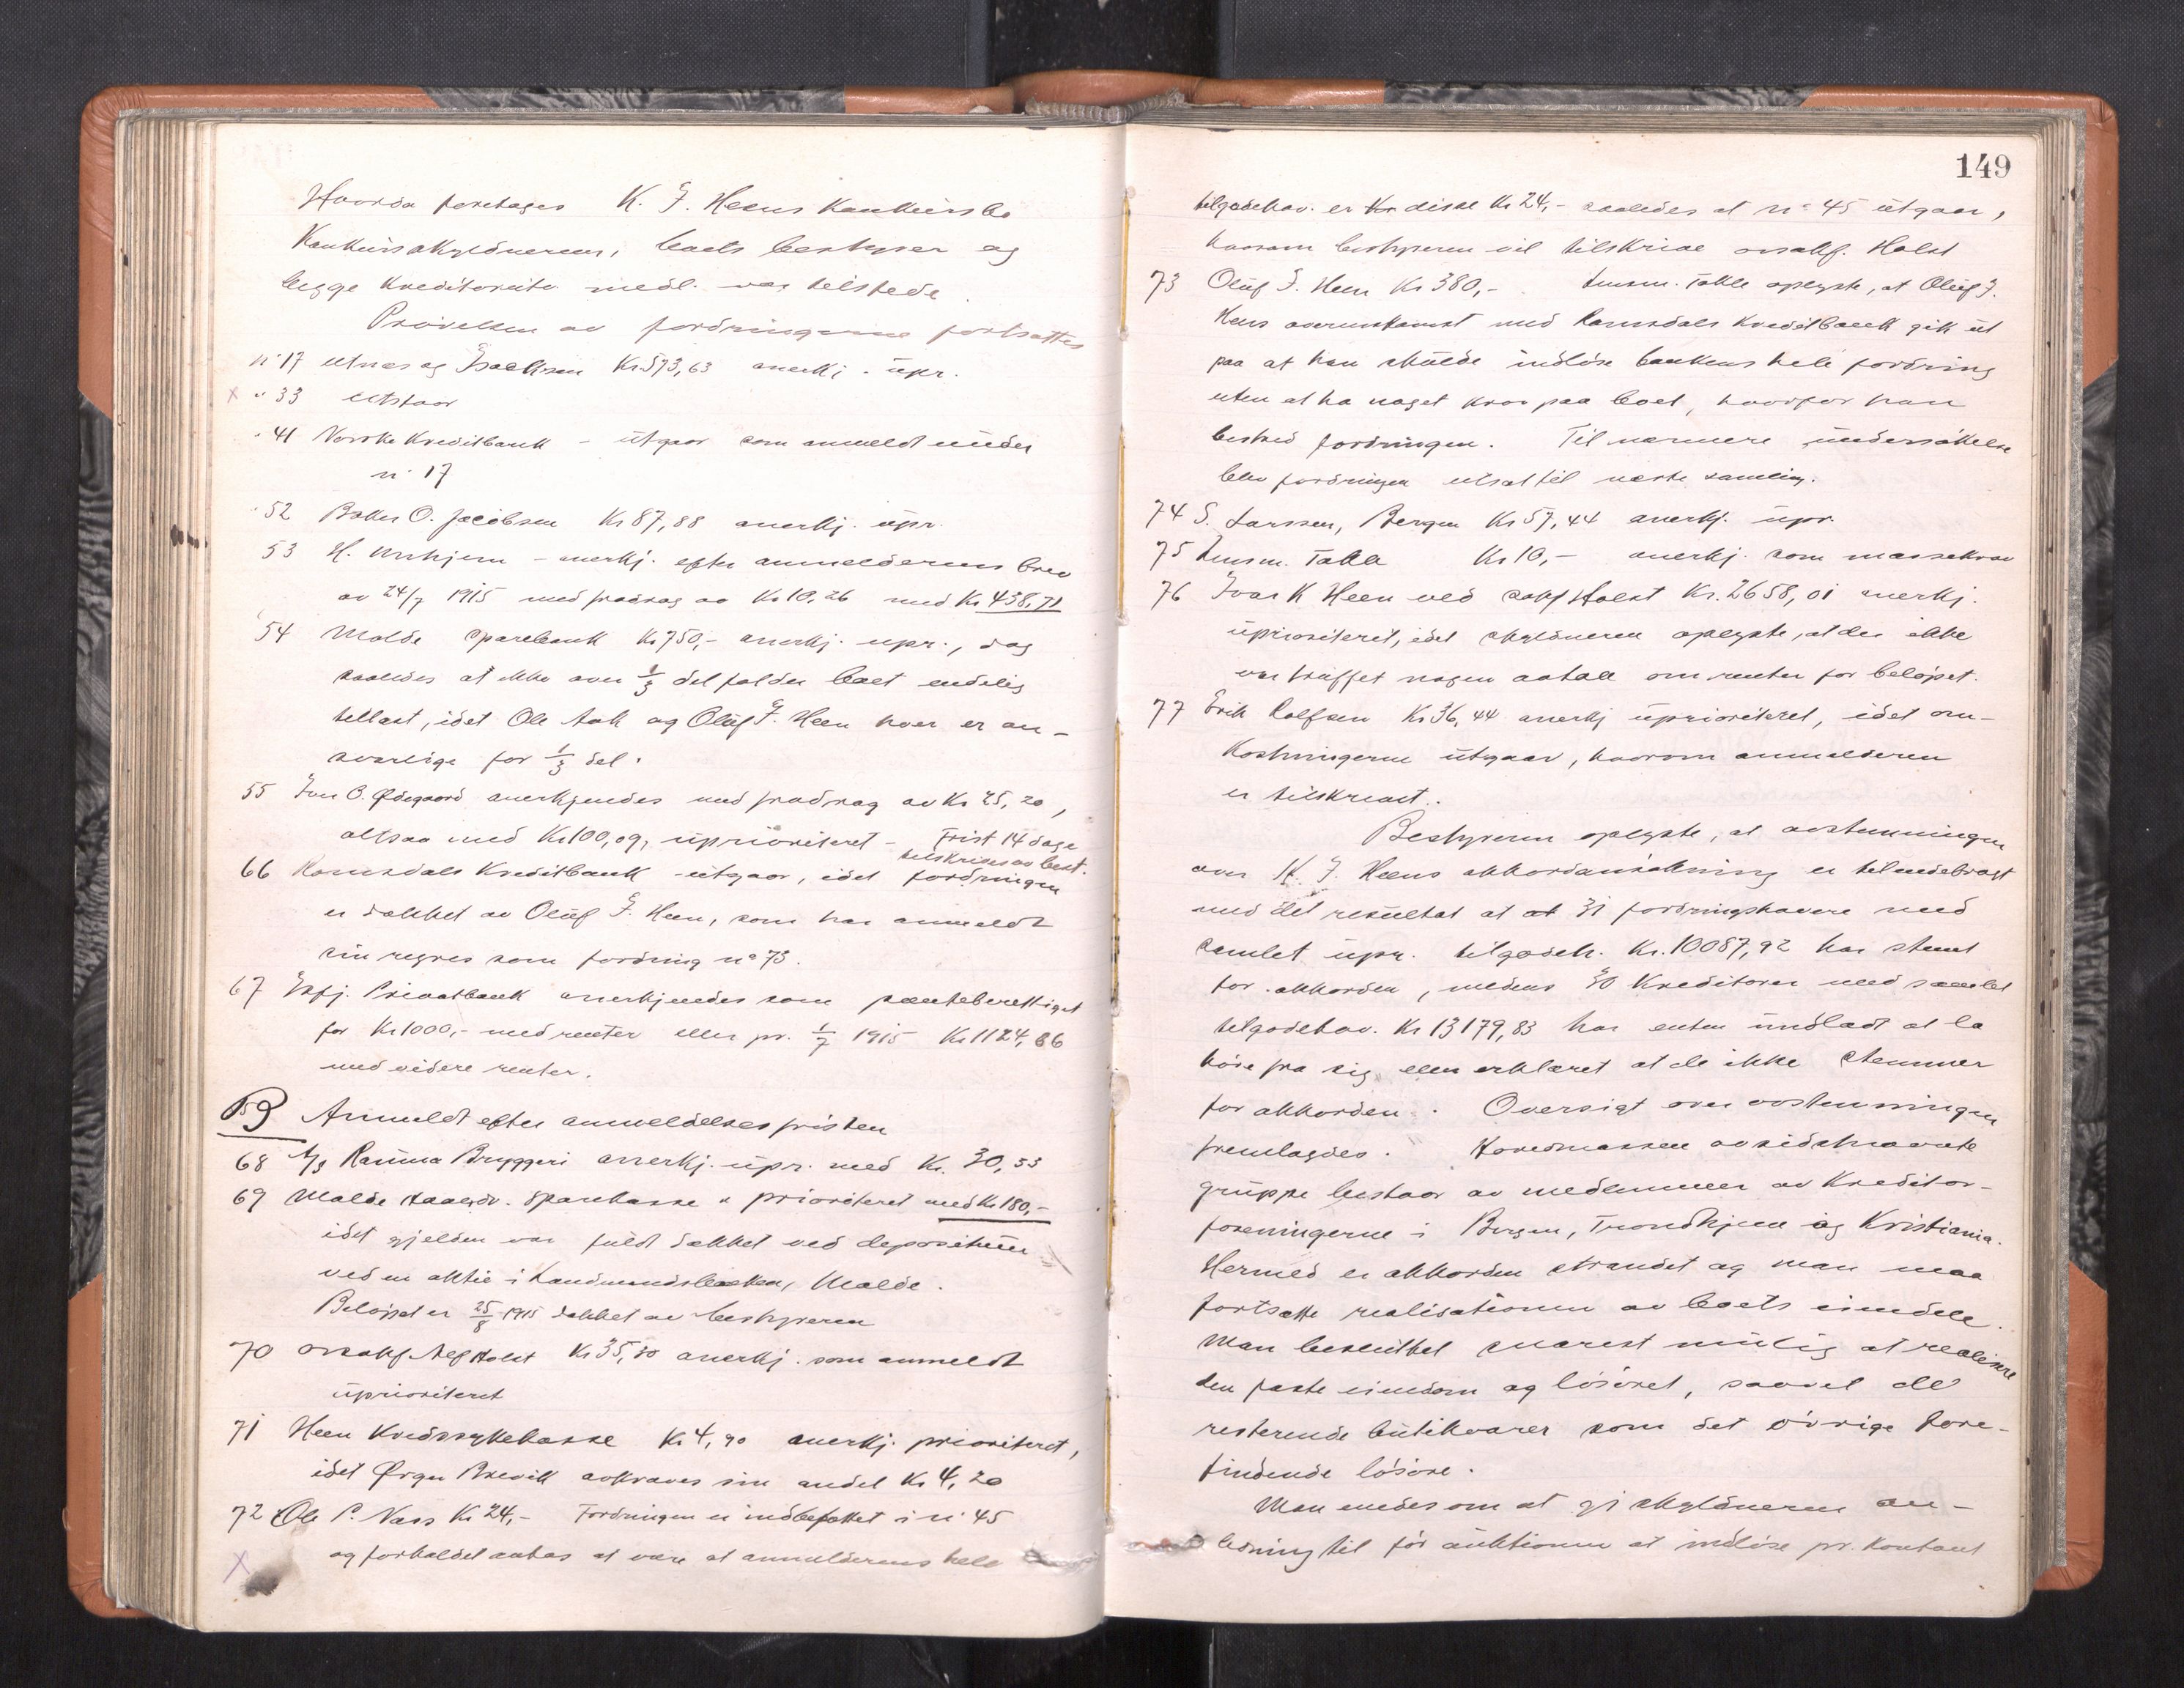 Hvorda foretages K. J. Heens Konkursbo
Konkursskyldneren, boets bestyrer og
begge kreditorutv. medl. var tilstede.
Prøvelsen av fordringerne fortsattes
nº 17 Utnes og Isachsen Kr 573,63 anerkj. upr.
x " 33 utstaar
" 41 Norske Kreditbank - utgaar som anmeldt under
nº 17
" 52 Baker O. Jacobsen Kr 87,88 anerkj. upr.
53 H. - anerkj. efter anmelderens brev
av 24/7 1915 med fradrag av Kr 10,26 med Kr 438,71
54 Molde Sparebank Kr 750,- anerkj. upr., dog
saaledes at ikke over 1/3 del falder boet endelig
tillast, idet Ole Aak og Oluf J. Heen hver er an-
svarlige for 1/3 del.
55 Iver O. Ødegaard anerkjendes med fradrag av Kr 25,20,
altsaa med Kr 100,09, uprioriteret - Frist 14 dage
tilskrives av best.
66 Romsdals Kreditbank - utgaar, idet fordringen
er dækket av Oluf J. Heen, som har anmeldt
sin regres som fordring nº 73.
67 Privatbank anerkjendes som panteberettiget
for Kr 1000,- med renter eller pr. 1/7 1915 Kr 1124,66
med videre renter.
B Anmeldt efter anmeldelsesfristen
68 A/S Rauma Bryggeri anerkj. upr. med Kr. 30,53
69 Molde Haandv. Sparekasse " prioriteret med Kr 180,-
idet gjelden var fuldt dækket ved depositum
ved en aktie i Landmandsbanken, Molde.
Beløpet er 25/8 1915 dækket av bestyreren
70 Orsakf. Alf Holst Kr 35,50 anerkj. som anmeldt
uprioriteret
71 Heen Kredssykekasse Kr 4,90 anerkj. prioriteret,
idet Ørger Brevik avkræves sin andel Kr 4,20
72 Ole P. Næss Kr 24,- Fordringen er indbefattet i nº 45
x og forholdet antas at være at anmelderens hele
149
tilgodehav. er disse Kr 24,- saaledes at nº 45 utgaar,
hvorom bestyreren vil tilskrive orsakf. Holst
73 Oluf J. Heen Kr 380,-. Lensm. Talle oplyste, at Oluf J.
Heens overenskomst med Romsdals Kreditbank gik ut
paa at han skulde indløse bankens hele fordring
uten at ha noget krav paa boet, hvorfor han
bestred fordringen. Til nærmere undersøkelse
blev fordringen utsat til næste samling.
74 S. Larssen, Bergen Kr 57,44 anerkj. upr.
75 Lensm. Talle Kr 10,- anerkj. som massekrav
76 Ivar K Heen ved sakf Holst Kr. 2658,01 anerkj.
uprioriteret, idet skyldneren oplyste, at der ikke
var truffet nogen avtale om renter for beløpet.
77 Erik Rolfsen Kr 36,44 anerkj uprioriteret, idet om-
kostningerne utgaar, hvorom anmelderen
er tilskrevet.
Bestyreren oplyste, at avstemningen
over K. J. Heens akkordansøkning er tilendebragt
med det resultat at at 31 fordringshavere med
samlet upr. tilgodeh. Kr. 10087,92 har stemt
for akkorden, medens 30 Kreditorer med samlet
tilgodehav. Kr 13179,83 har enten undladt at la
høre fra sig eller erklæret at de ikke stemmer
for akkorden. Oversigt over avstemningen
fremlagdes. Hovedmassen av sidstnævnte
gruppe bestaar av medlemmer av Kreditor-
foreningerne i Bergen, Trondhjem og Kristiania.
Hermed er akkorden strandet og man maa
fortsætte realisationen av boets eiendele.
Man besluttet snarest mulig at realisere
den faste eiendom og løsøret, saavel de
resterende butikvarer som det øvrige fore-
findende løsøre.
Man enedes om at gi skyldneren an-
ledning til før auktionen at indløse pr. kontant